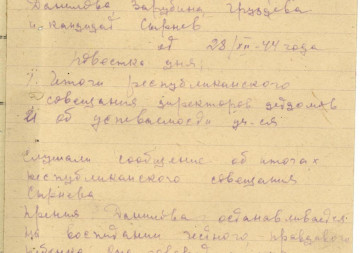 Данилова, Зарубина Груздева
и кандидат Сырнев
от 28/XII-44 года
Повестка дня:
1) Итоги республиканского
совещания директоров детдомов
и об успеваемости уч-ся
Слушали сообщение об итогах
республиканского совещания
Сырнева
Прения Данилова останавливается
на воспитании честного правдивого
ребенка